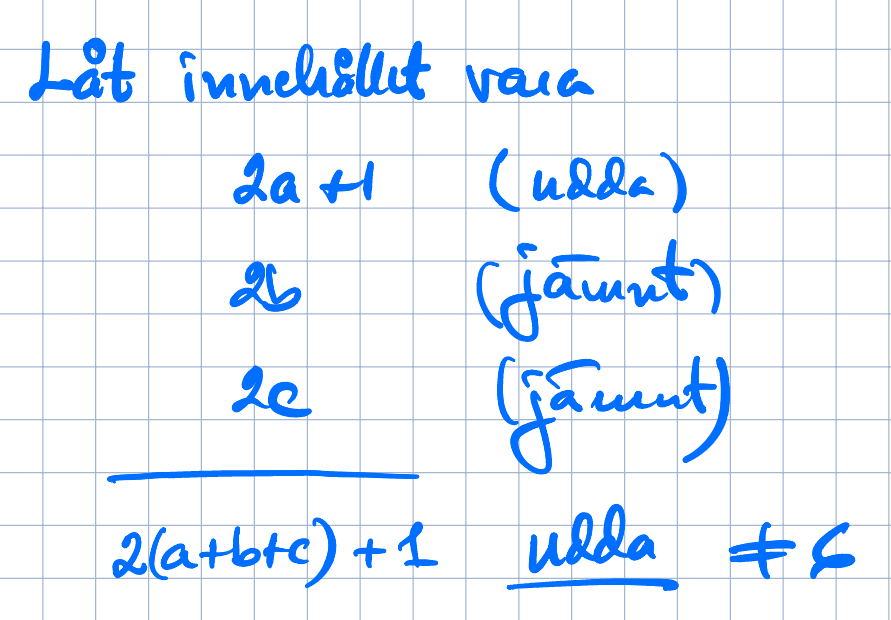 Låt innehållet vara
2a+1 (udda)
2b (jämnt)
2c (jämnt)
2(a+b+c)+1 udda ≠ 6